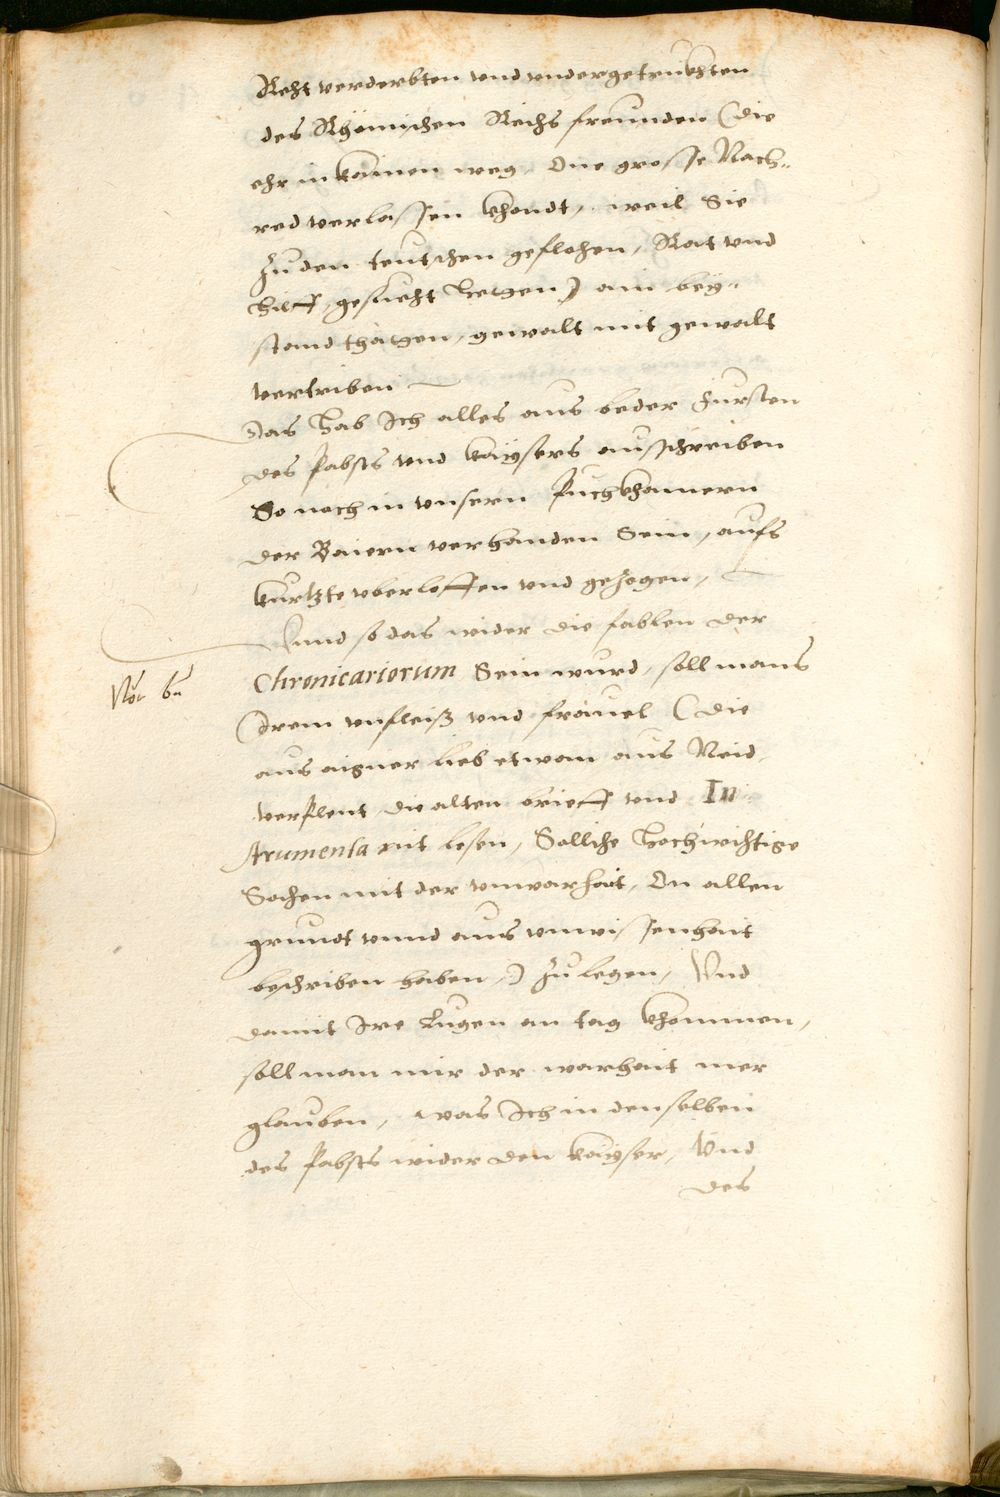 Recht verderbten vnd vndergetruckhten
des Rhömischen Reichs freunden (die
ehr in kainen weg, One grosse Nach-
red verlassen khondt, weil Sie
zu den teutschen geflohen, Rat vnd
hilff, gesucht hetten) ain bey-
stand thätten, gewalt mit gewalt
vertriben
Das hab Ich alles aus beder Fürsten
des Pabsts vnd kaysers ausschreiben
So noch in vnsern Puchkhamern
der Baiern verhanden Sein, aufs
kurtzte vberloffen vnd gezogen,
Vnnd so das wider die fablen der
Chronicariorum Sein wurd, soll mans
Irem vnfleiß vnd fräuel (die
aus aigner lieb etwan aus Neid
verplent, die alten brieff vnd In
strumenta nit lesen, Solliche hochwichtige
Sachen mit der vnwarhait, On allen
grundt vnnd aus vnwissenhait
beschriben haben,) zu legen, Vnd
damit Ire Lugen an tag khommen,
soll man mir der warhait mer
glauben, was Ich in denselben
des Pabsts wider den kayser, Vnd
des